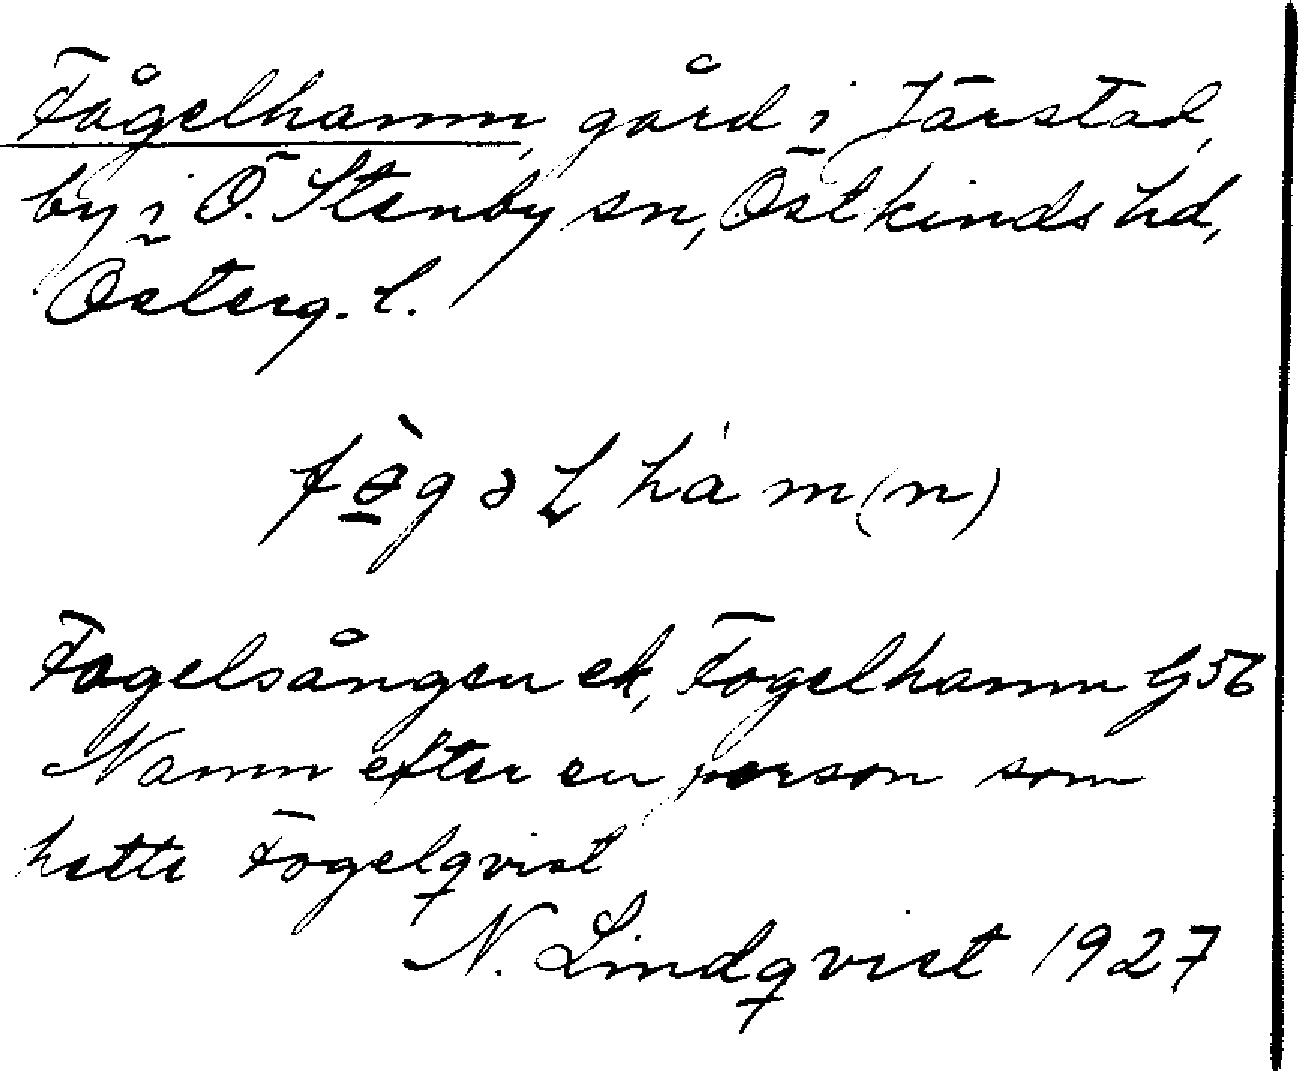 Fågelhamn, gård i Järstad,
by i Ö. Stenby sn, Östkinds hd,
Österg. l.
Fogelsången ek, Fogelhamn G 56
Namn efter en person som
hette Fogelqvist
N. Lindqvist 1927